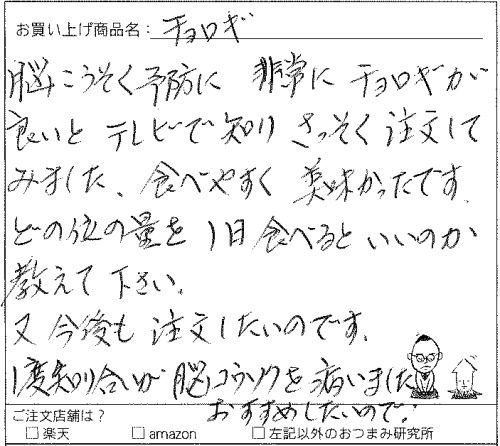 お買い上げ商品名： チョロギ
脳こうそく予防に 非常に チョロギが
良いと テレビで知り さっそく注文して
みました、食べやすく 美味かったです。
どの位の量を 1日食べるといいのか
教えて下さい。
又今後も 注文したいのです。
1度知り合いが 脳コウソクを病いました
おすすめしたいので。
ご注文店舗は？
□ 楽天 □ amazon □ 左記以外のおつまみ研究所